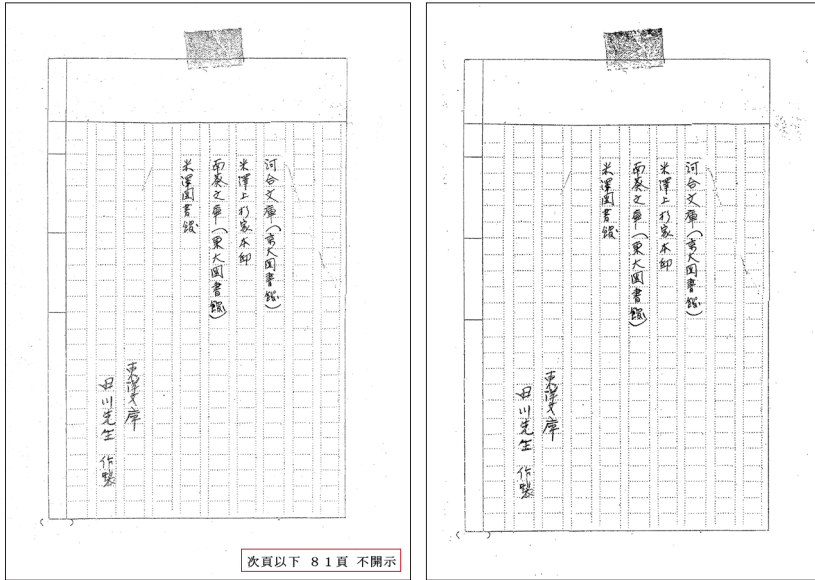 河合文庫(京大図書館)
米澤上杉家本印
南葵文庫(東大図書館)
米澤図書館
東洋文庫
田川先生 作製
次頁以下 81頁 不開示
河合文庫(京大図書館)
米澤上杉家本印
南葵文庫(東大図書館)
米澤図書館
東洋文庫
田川先生 作製